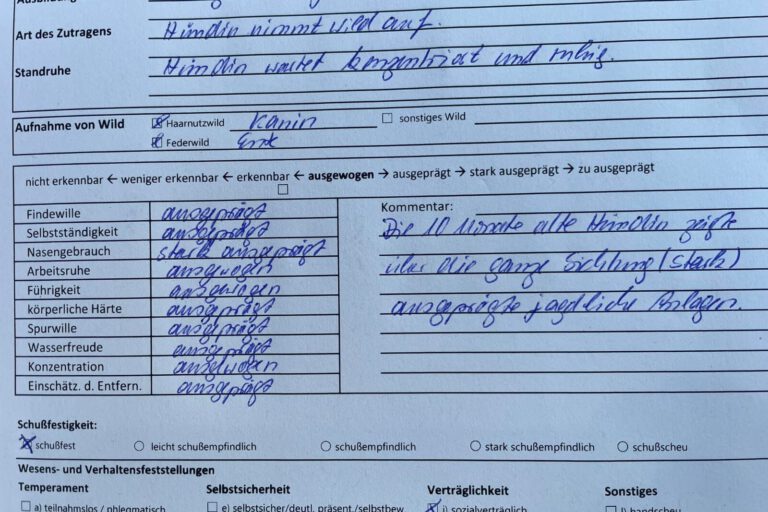 Art des Zutragens Hündin nimmt wild auf.
Standruhe Hündin wartet konzentriert und ruhig.
Aufnahme von Wild Haarnutzwild Kanin sonstiges Wild
Federwild Ente
nicht erkennbar ← weniger erkennbar ← erkennbar ← ausgewogen → ausgeprägt → stark ausgeprägt → zu ausgeprägt
Findewille ausgeprägt
Selbstständigkeit ausgeprägt
Nasengebrauch stark ausgeprägt
Arbeitsruhe ausgewogen
Führigkeit ausgewogen
körperliche Härte ausgeprägt
Spurwille ausgeprägt
Wasserfreude ausgeprägt
Konzentration ausgewogen
Einschätz. d. Entfern. ausgeprägt
Kommentar:
Die 10 Monate alte Hündin zeigte
über die ganze Sichtung (stark)
ausgeprägte jagdliche Anlagen.
Schußfestigkeit:
schußfest leicht schußempfindlich schußempfindlich stark schußempfindlich schußscheu
Wesens- und Verhaltensfeststellungen
Temperament Selbstsicherheit Verträglichkeit Sonstiges
a) teilnahmslos / phlegmatisch e) selbstsicher/deutl. präsent./selbstbew i) sozialverträglich l) handscheu